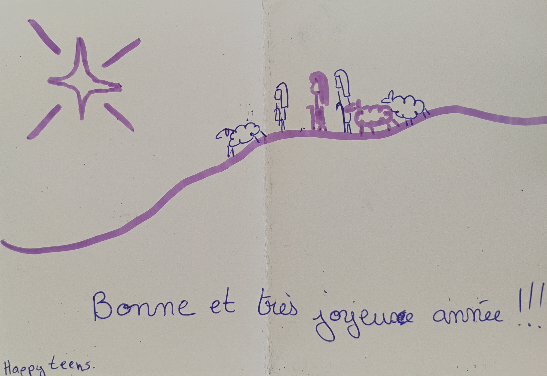 Bonne et très joyeuse année !!!
Happy teens.